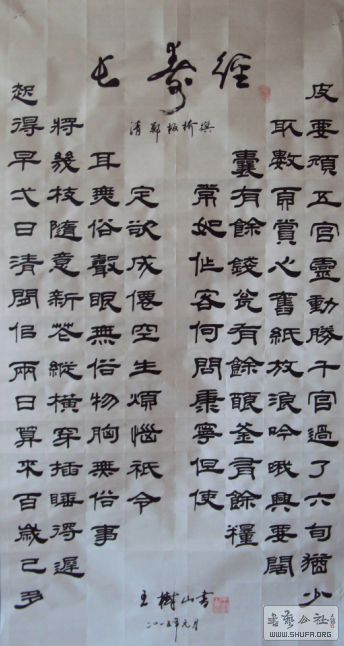 長壽經
清 鄭板橋撰
常如作客何問康寧但使
囊有餘錢瓮有餘釀釜有餘糧
取數頁賞心舊紙放浪吟哦興要闊
皮要頑五官靈動勝千官過了六旬猶少
定欲成僊空生煩惱祇令
耳無俗聲眼無俗物胸無俗事
將幾枝隨意新花縱橫穿插睡得遲
起得早弌日清閒佀兩日算來百歲已多
王樹山書
二〇一五年元月
書藝公社
WWW.SHUFA.ORG